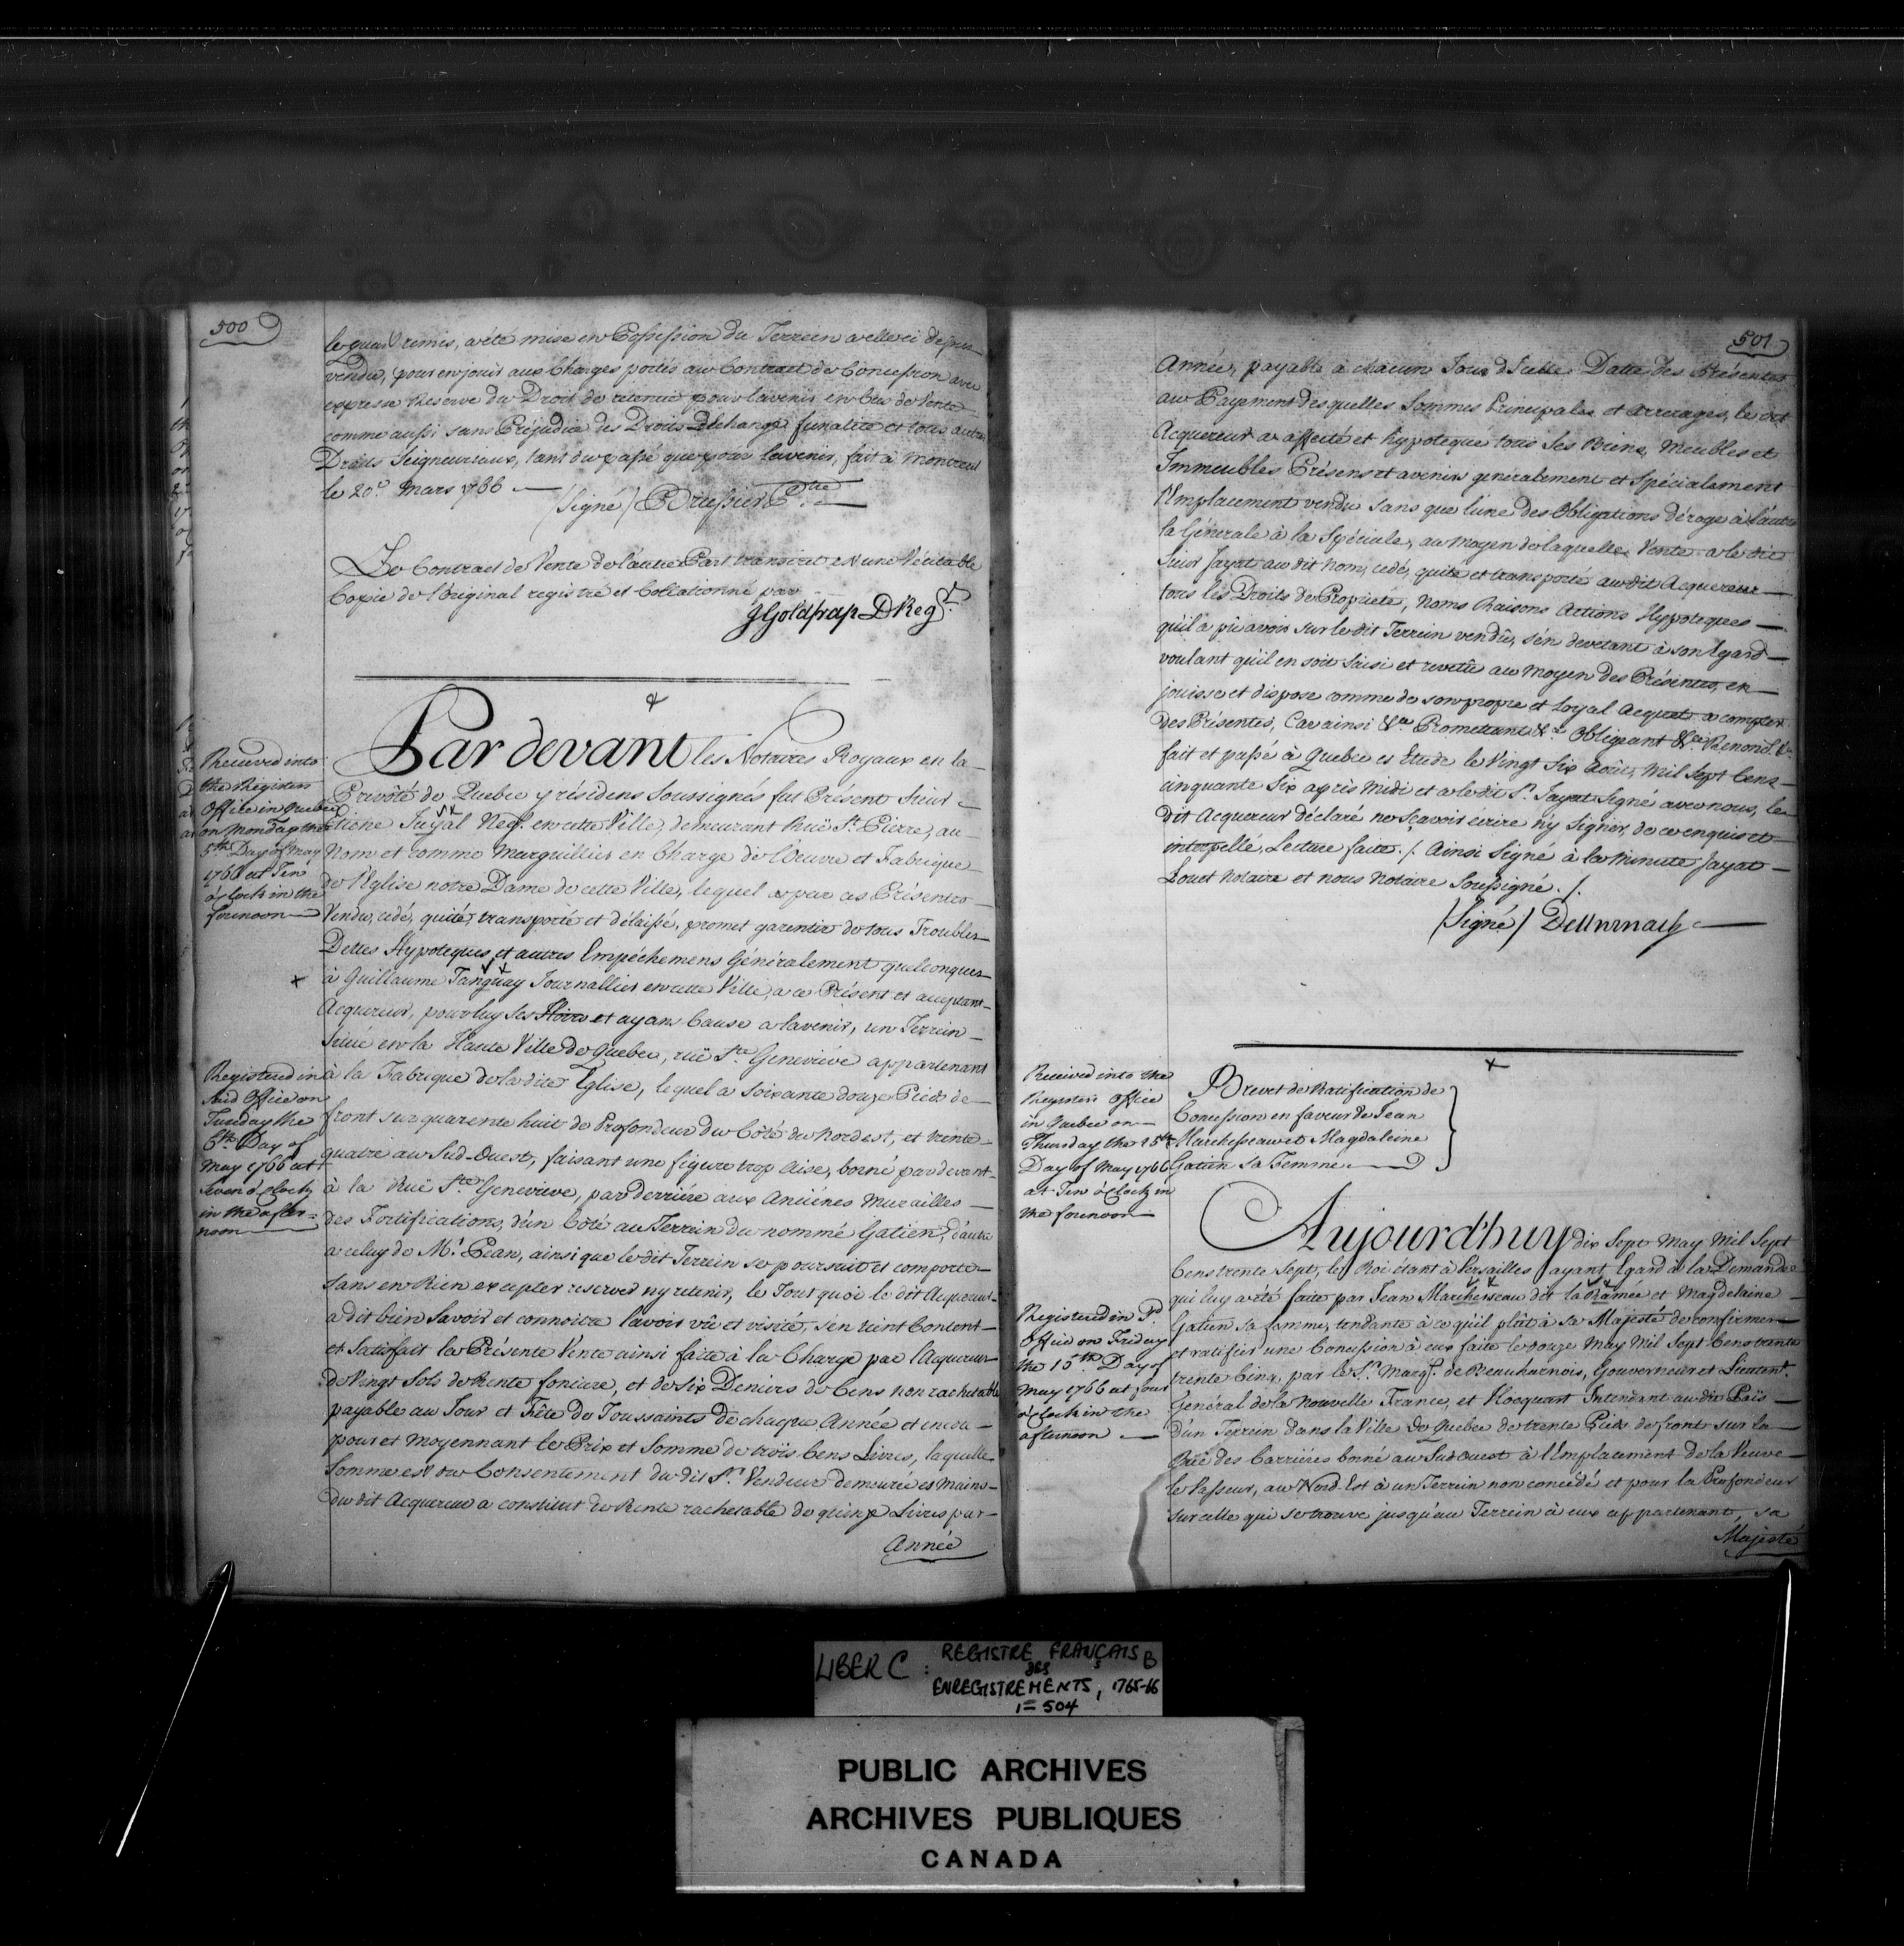 500
remis, a été mise en Possession du Terrein a elle ci dessus
vendu, pour en jouir aux Charges portés au Contract de Concession avec
expresse Reserve du Droit de retenue pour l'avenir en Cas de Vente
comme aussi sans Préjudice des Droits d'échange funalité et tous autres
Droits Seigneuriaux, tant du passé que pour l'avenir, fait à Montreal
le 20e. Mars 1766 —
(Signé)
Le Contract de Vente de l'autre Part transcrit est une Véritable
Copie de l'Original registré et Collationné par
JGoldfrap DRegr.
Received into
the Registers
Office in Quebec
on Monday the
5th. Day of May
1766 at Ten
o'Clock in the
forenoon —
Par devant les Notaires Royaux en la
Prevôté de Quebec y résidens Soussignés fut Présent Sieur
Etiene Jayat Negt. en cette Ville, demeurant Ruë St. Pierre, au
Nom et comme Marguillier en Charge de l'Oeuvre et Fabrique
de l'Eglise notre Dame de cette Ville, lequel a par ces Présentes
Vendu, cedé, quité, transporté et délaissé, promet garentir de tous Troubles
Dettes Hypoteques et autres Empéchemens Généralement quelconques
à Guillaume Tanguay Journallier en cette Ville, a ce Présent et acceptant
Acquereur, pour luy ses Hoirs et ayans Cause a lavenir, un Terrein
Scitué en la Haute Ville de Quebec, ruë Ste. Geneviéve appartenant
Registered in
said Office on
Tuesday the
6th. Day of
May 1766 at
Seven o'Clock
in the after=
noon —
à la Fabrique de la dite Eglise, lequel a Soixante douze Pieds de
front sur quarente huit de Profondeur du Côté du Nord est, et trente
quatre au Sud-Ouest, faisant une figure trop aise, borné par devant
à la Ruë Ste. Geneviéve, par derriére aux Anciénes Murailles
des Fortifications, d'un Côté au Terrein du nommé Gatien, d'autre
a celuy de Mr. Péan, ainsi que le dit Terrein se poursuit et comporte
Sans en Rien excepter reserver ny retenir, le Tout quoi le dit Acquereur
a dit bien Savoir et connoitre l'avoir vû et visité, s'en tient Content
et Satisfait la Présente Vente ainsi faite à la Charge par l'Acquereur
de Vingt Sols de Rente fonciere, et de Six Deniers de Cens non rachetable
payable au Jour et Fête de Toussaints de chaque Année et encore
pour et moyennant le Prix et Somme de trois Cens Livres, laquelle
Somme est du Consentement du dit Sr. Vendeur demeurée es Mains
du dit Acquereur a constitut de Rente rachetable de quinze Livres par
Année
501
Année, payable à chacun Jour d'Icelle Datte des Présentes
au Payement desquelles Sommes Principales et arrerages, le dit
Acquereur a affecté et hypoteque tous Ses Biens, Meubles et
Immeubles Présens et avenirs generalement et Spécialement
l'Emplacement vendu sans que l'une des Obligations déroge à l'autre
la Générale à la Spéciale, au moyen de laquelle Vente a le dit
Sieur Jayat au dit Nom, cedé, quité et transporté au dit Acquereur
tous les Droits de Proprieté, Noms Raisons Actions Hypoteques
quil a pû avoir sur le dit Terrein vendu, s'en devetant à son Egard
voulant qu'il en soit Saisi et revetû au moyen des Présentes, en
jouisse et dispose comme de son propre et Loyal Acquet a compter
des Présentes, Car ainsi &ca Promettant &ca Obligeant &ca Renonct. &ca
fait et passé à Quebec es Etude le Vingt Six Août, Mil Sept Cens
cinquante Six après Midi et a le dit Sr. Jayat Signé avec nous, le
dit Acquereur déclaré ne Sçavoir écrire ny Signer, de ce enquis et
interpellé, Lecture faite. /. Ainsi Signé à la Minute Jayat
Louet Notaire et nous Notaire Soussigné. /.
(Signé)
Received into the
Registers Office
in Quebec on
Thursday the 15th.
Day of May 1766
at Ten o'Clock in
the forenoon —
Brevet de Ratification de
Concession en faveur de Jean
Marchesseau et Magdeleine
Gatien Sa Femme
Aujourd'huy dix Sept May Mil Sept
Cens trente Sept, le Roi étant à Versailles ayant Egard à la Demande
qui luy a été faite par Jean Marchesseau dit la Ramée et Magdelaine
Registered in Sd.
Office on Friday
the 15th. Day of
May 1766 at four
o'Clock in the
afternoon —
Gatien Sa femme, tendante à ce qu'il plût à Sa Majesté de confirmer
et ratifier une Concession à eux faite le douze May Mil Sept Cens trente
trente Cinq, par le Sr. Marqs. de Beauharnois, Gouverneur et Lieutent.
Général de la Nouvelle France, et Hocquart Intendant au dit Païs
d'un Terrein dans la Ville de Quebec de trente Pieds de front sur la
Ruë des Carriéres borné au Sud Ouest à l'Emplacement de la Veuve
le Vasseur, au Nord-Est à un Terrein non concédé et pour la Profondeur
sur celle qui se trouve jusqu'au Terrein à eux appartenant, Sa
Majesté
LIBER C : REGISTRE FRANÇAIS B
des
ENREGISTREMENTS, 1765-66
1 = 504
PUBLIC ARCHIVES
ARCHIVES PUBLIQUES
CANADA